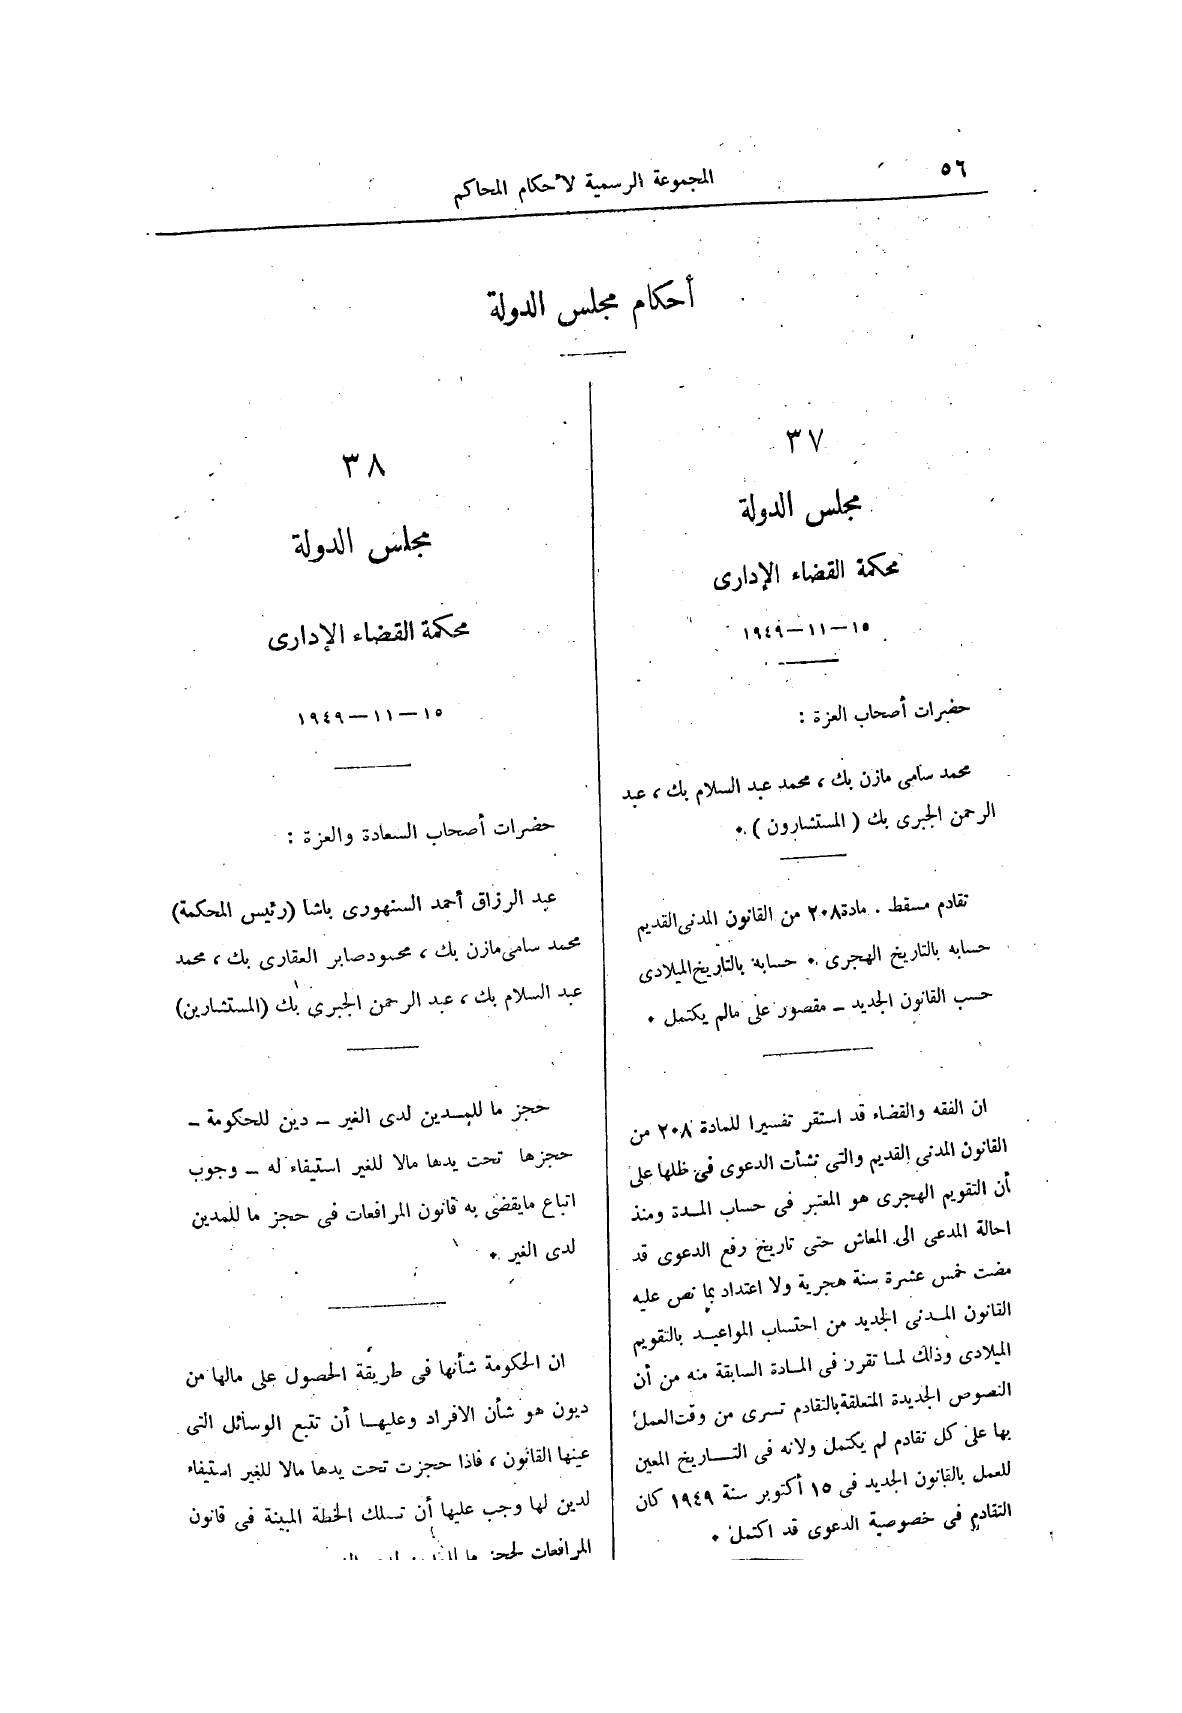 ٥٦
المجموعة الرسمية لأحكام المحاكم
أحكام مجلس الدولة
٣٧
مجلس الدولة
محكمة القضاء الإدارى
١٥-١١-١٩٤٩
حضرات أصحاب العزة :
محمد سامى مازن بك ، محمد عبد السلام بك ، عبد
الرحمن الجبرى بك ( المستشارون ) .
تقادم مسقط . مادة ٢٠٨ من القانون المدنى القديم
حسابه بالتاريخ الهجرى . حسابه بالتاريخ الميلادى
حسب القانون الجديد – مقصور على مالم يكتمل .
ان الفقه والقضاء قد استقر تفسيرا للمادة ٢٠٨ من
القانون المدنى القديم والتى نشأت الدعوى فى ظلها على
أن التقويم الهجرى هو المعتبر فى حساب المدة ومنذ
احالة المدعى الى المعاش حتى تاريخ رفع الدعوى قد
مضت خمس عشرة سنة هجرية ولا اعتداد بما نص عليه
القانون المدنى الجديد من احتساب المواعيد بالتقويم
الميلادى وذلك لما تقرر فى المادة السابقة منه من أن
النصوص الجديدة المتعلقة بالتقادم تسرى من وقت العمل
بها على كل تقادم لم يكتمل ولانه فى التاريخ المعين
للعمل بالقانون الجديد فى ١٥ أكتوبر سنة ١٩٤٩ كان
التقادم فى خصوصية الدعوى قد اكتمل .
٣٨
مجلس الدولة
محكمة القضاء الإدارى
١٥-١١-١٩٤٩
حضرات أصحاب السعادة والعزة :
عبد الرزاق أحمد السنهورى باشا (رئيس المحكمة)
محمد سامى مازن بك ، محمود صابر العقارى بك ، محمد
عبد السلام بك ، عبد الرحمن الجبرى بك (المستشارين)
حجز ما للمدين لدى الغير – دين للحكومة –
حجزها تحت يدها مالا للغير استيفاء له – وجوب
اتباع مايقضى به قانون المرافعات فى حجز ما للمدين
لدى الغير .
ان الحكومة شأنها فى طريقة الحصول على مالها من
ديون هو شأن الافراد وعليها أن تتبع الوسائل التى
عينها القانون ، فاذا حجزت تحت يدها مالا للغير استيفاء
لدين لها وجب عليها أن تسلك الخطة المبينة فى قانون
المرافعات لحجز ما